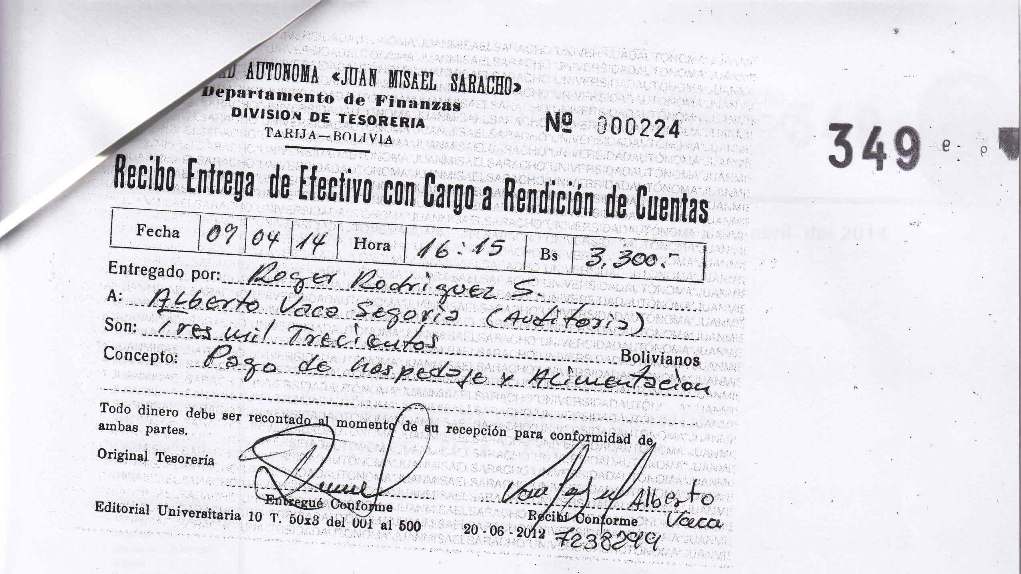 AUTONOMA «JUAN MISAEL SARACHO»
Departamento de Finanzas
DIVISION DE TESORERIA
TARIJA—BOLIVIA
Nº 000224
349
Recibo Entrega de Efectivo con Cargo a Rendición de Cuentas
Fecha 09 04 14 Hora 16:15 Bs 3,300.-
Entregado por: Roger Rodriguez S.
A: Alberto Vaca Segovia (Auditoria)
Son: Tres mil Trecientos Bolivianos
Concepto: Pago de hospedaje y Alimentacion
Todo dinero debe ser recontado al momento de su recepción para conformidad de
ambas partes.
Original Tesorería
Alberto
Entregué Conforme Recibí Conforme Vaca
Editorial Universitaria 10 T. 50x3 del 001 al 500 20-06-2012 7238299